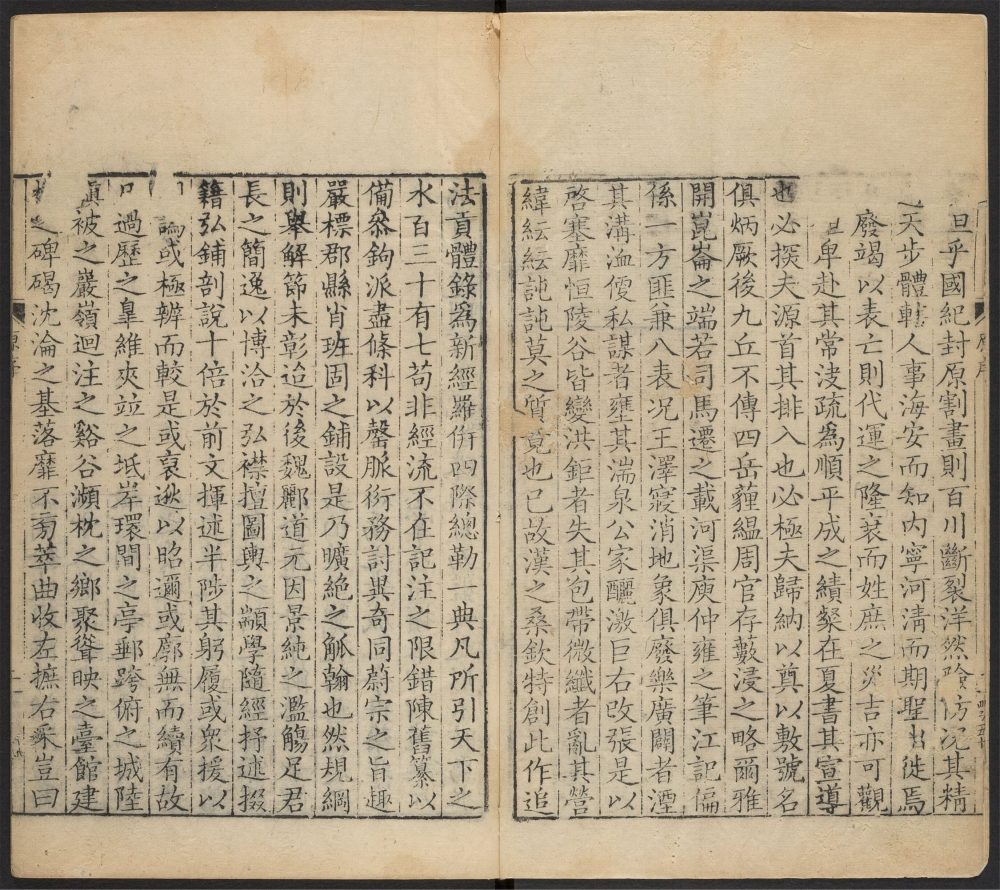 旦乎國紀封原割畫則百川斷裂洋然險防沉其精
天步體轄人事海安而知內寧河清而期聖出徙焉
廢竭以表亡則代運之隆衰而姓庶之災吉亦可觀
卑赴其常浚疏為順平成之績粲在夏書其宣導
也必探夫源首其排入也必極夫歸納以奠以敷號名
俱炳厥後九丘不傳四岳薶緼周官存藪浸之略爾雅
開崑崙之端若司馬遷之載河渠庾仲雍之筆江記偏
係一方匪兼八表况王澤寢消地象俱廢樂廣闢者湮
其溝洫便私謀者壅其湍泉公家釃激巨右改張是以
啓塞靡恒陵谷皆變洪鉅者失其包帶微纖者亂其營
緯紜紜訑訑莫之質竟也已故漢之桑欽特創此作追
法貢體錄為新經羅併四際總勒一典凡所引天下之
水百三十有七苟非經流不在記注之限錯陳舊纂以
備叅鉤派盡條科以罄脈衍務討異奇同蔚宗之旨趣
嚴標郡縣肖班固之鋪設是乃曠絶之觚翰也然規綱
則舉解節未彰迨於後魏酈道元因景純之濫觴足君
長之簡逸以博洽之弘襟擅圖輿之顓學隨經抒述掇
籍弘鋪剖說十倍於前文揮述半陟其躬履或衆援以
論或極辨而較是或哀逖以昭邇或廓無而續有故
過歷之臯維夾竝之坻岸環間之亭郵跨俯之城陸
眞被之巖嶺迴注之谿谷瀕枕之鄉聚聳映之臺館建
之碑碣沈淪之基落靡不旁萃曲收左摭右采豈曰